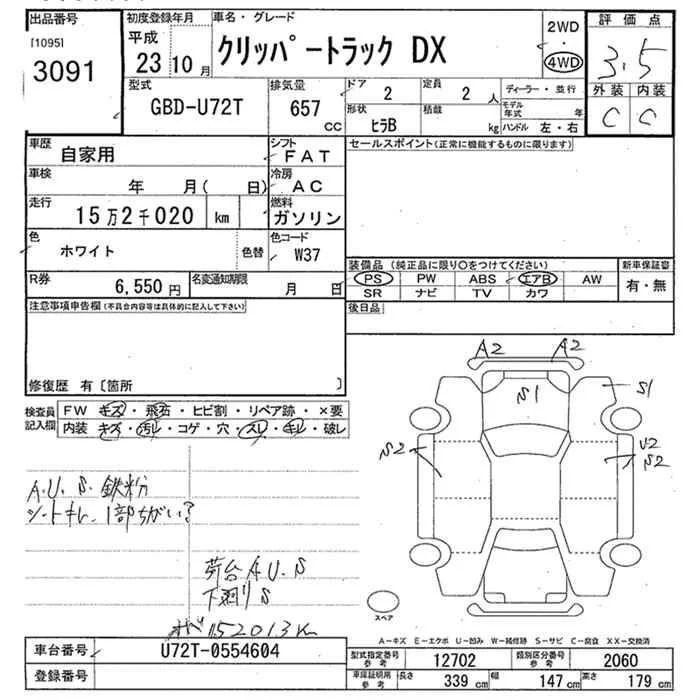 出品番号
[1095]
3091
初度登録年月
平成
23 10 月
車名・グレード
クリッパートラック DX
2WD
・
4WD
評価点
3.5
外装 内装
C C
型式
GBD-U72T
排気量
657
cc
ドア
2
定員
2 人
形状
ヒラB
積載
kg
ディーラー・並行
モデル年式 年
ハンドル 左・右
車歴
自家用
シフト
FAT
車検
年 月( 日)
冷房
AC
走行
15万2千020 km
燃料
ガソリン
色
ホワイト
色替
色コード
W37
R券
6,550 円
名変通知期限
月 日
セールスポイント(正常に機能するものに限ります)
装備品 (純正品に限り○をつけてください)
新車保証書
PS PW ABS エアB AW
SR ナビ TV カワ
有・無
後日品
注意事項申告欄(不具合内容等は具体的に記入して下さい)
修復歴 有〔箇所 〕
検査員記入欄
FW キズ・飛石・ヒビ割・リペア跡・×要
内装 キズ・汚レ・コゲ・穴・スレ・キレ・破レ
A.U.S.鉄粉
シートキレ、1部ちがい?
荷台 A.U.S
下廻り S
152013K
A2 A2
S1
S1
S2
U2
S2
スペア
A−キズ E−エクボ U−凹み W−補修跡 S−サビ C−腐食 XX−交換済
車台番号
U72T-0554604
登録番号
型式指定番号
参考
12702
類別区分番号
参考
2060
車庫証明用
参考
長さ
339 cm
幅
147 cm
高さ
179 cm